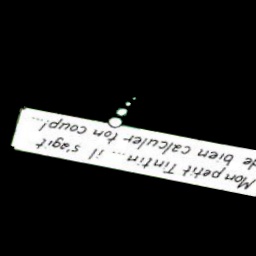 Mon petit Tintin ... il s'agit
de bien calculer ton coup!...